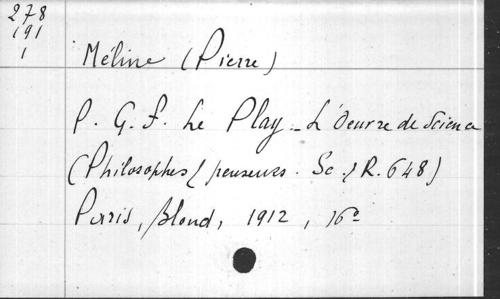 278
191
1
Méline (Pierre)
P. G. F. Le Play - L'Oeuvre de Science
(Philosophes & penseurs. Sc. & R. 648)
Paris, Bloud, 1912, 16º